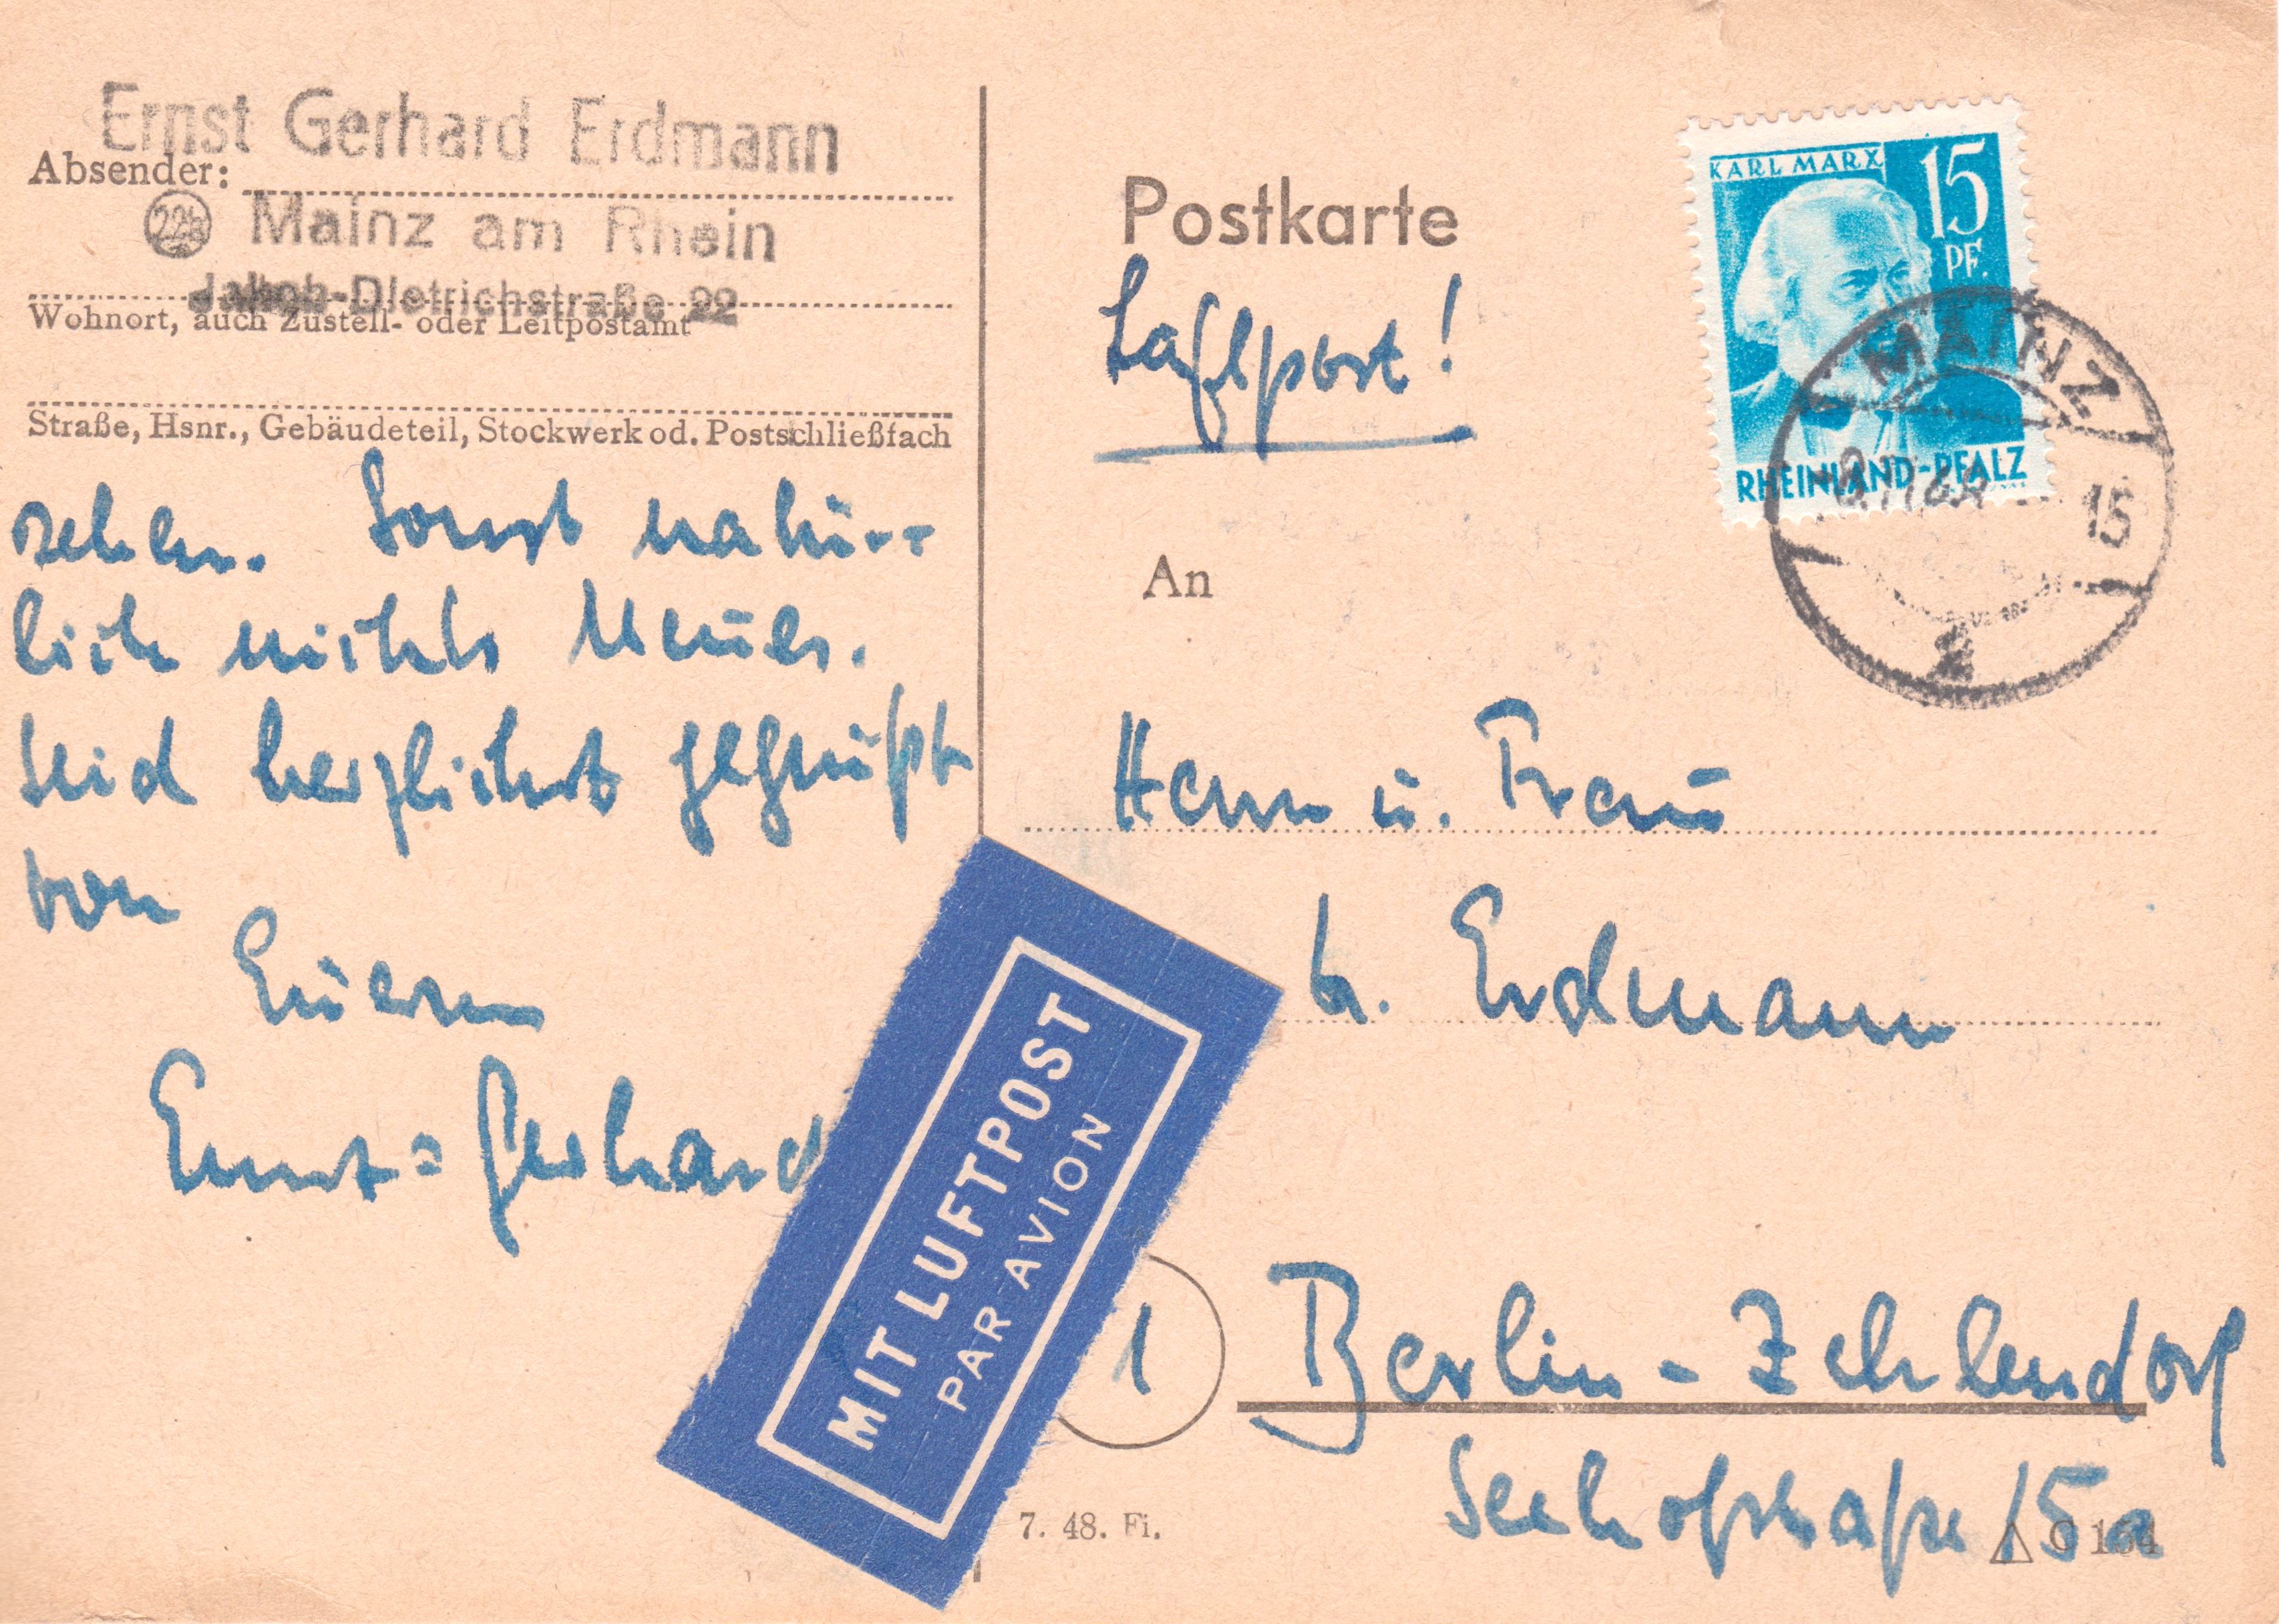 Ernst Gerhard Erdmann
Absender:
22b Mainz am Rhein
Jakob-Dietrichstraße 22
Wohnort, auch Zustell- oder Leitpostamt
Straße, Hsnr., Gebäudeteil, Stockwerk od. Postschließfach
Sonst natür-
lich nichts Neues.
Seid herzlichst gegrüßt
von
Euerm
Ernst=Gerhard
MIT LUFTPOST
PAR AVION
Postkarte
Luftpost!
KARL MARX
15
PF.
RHEINLAND-PFALZ
MAINZ
15
2
An
Herrn u. Frau
v. Erdmann
1 Berlin-Zehlendorf
Seehofstraße 15a
7. 48. Fi.
C 154